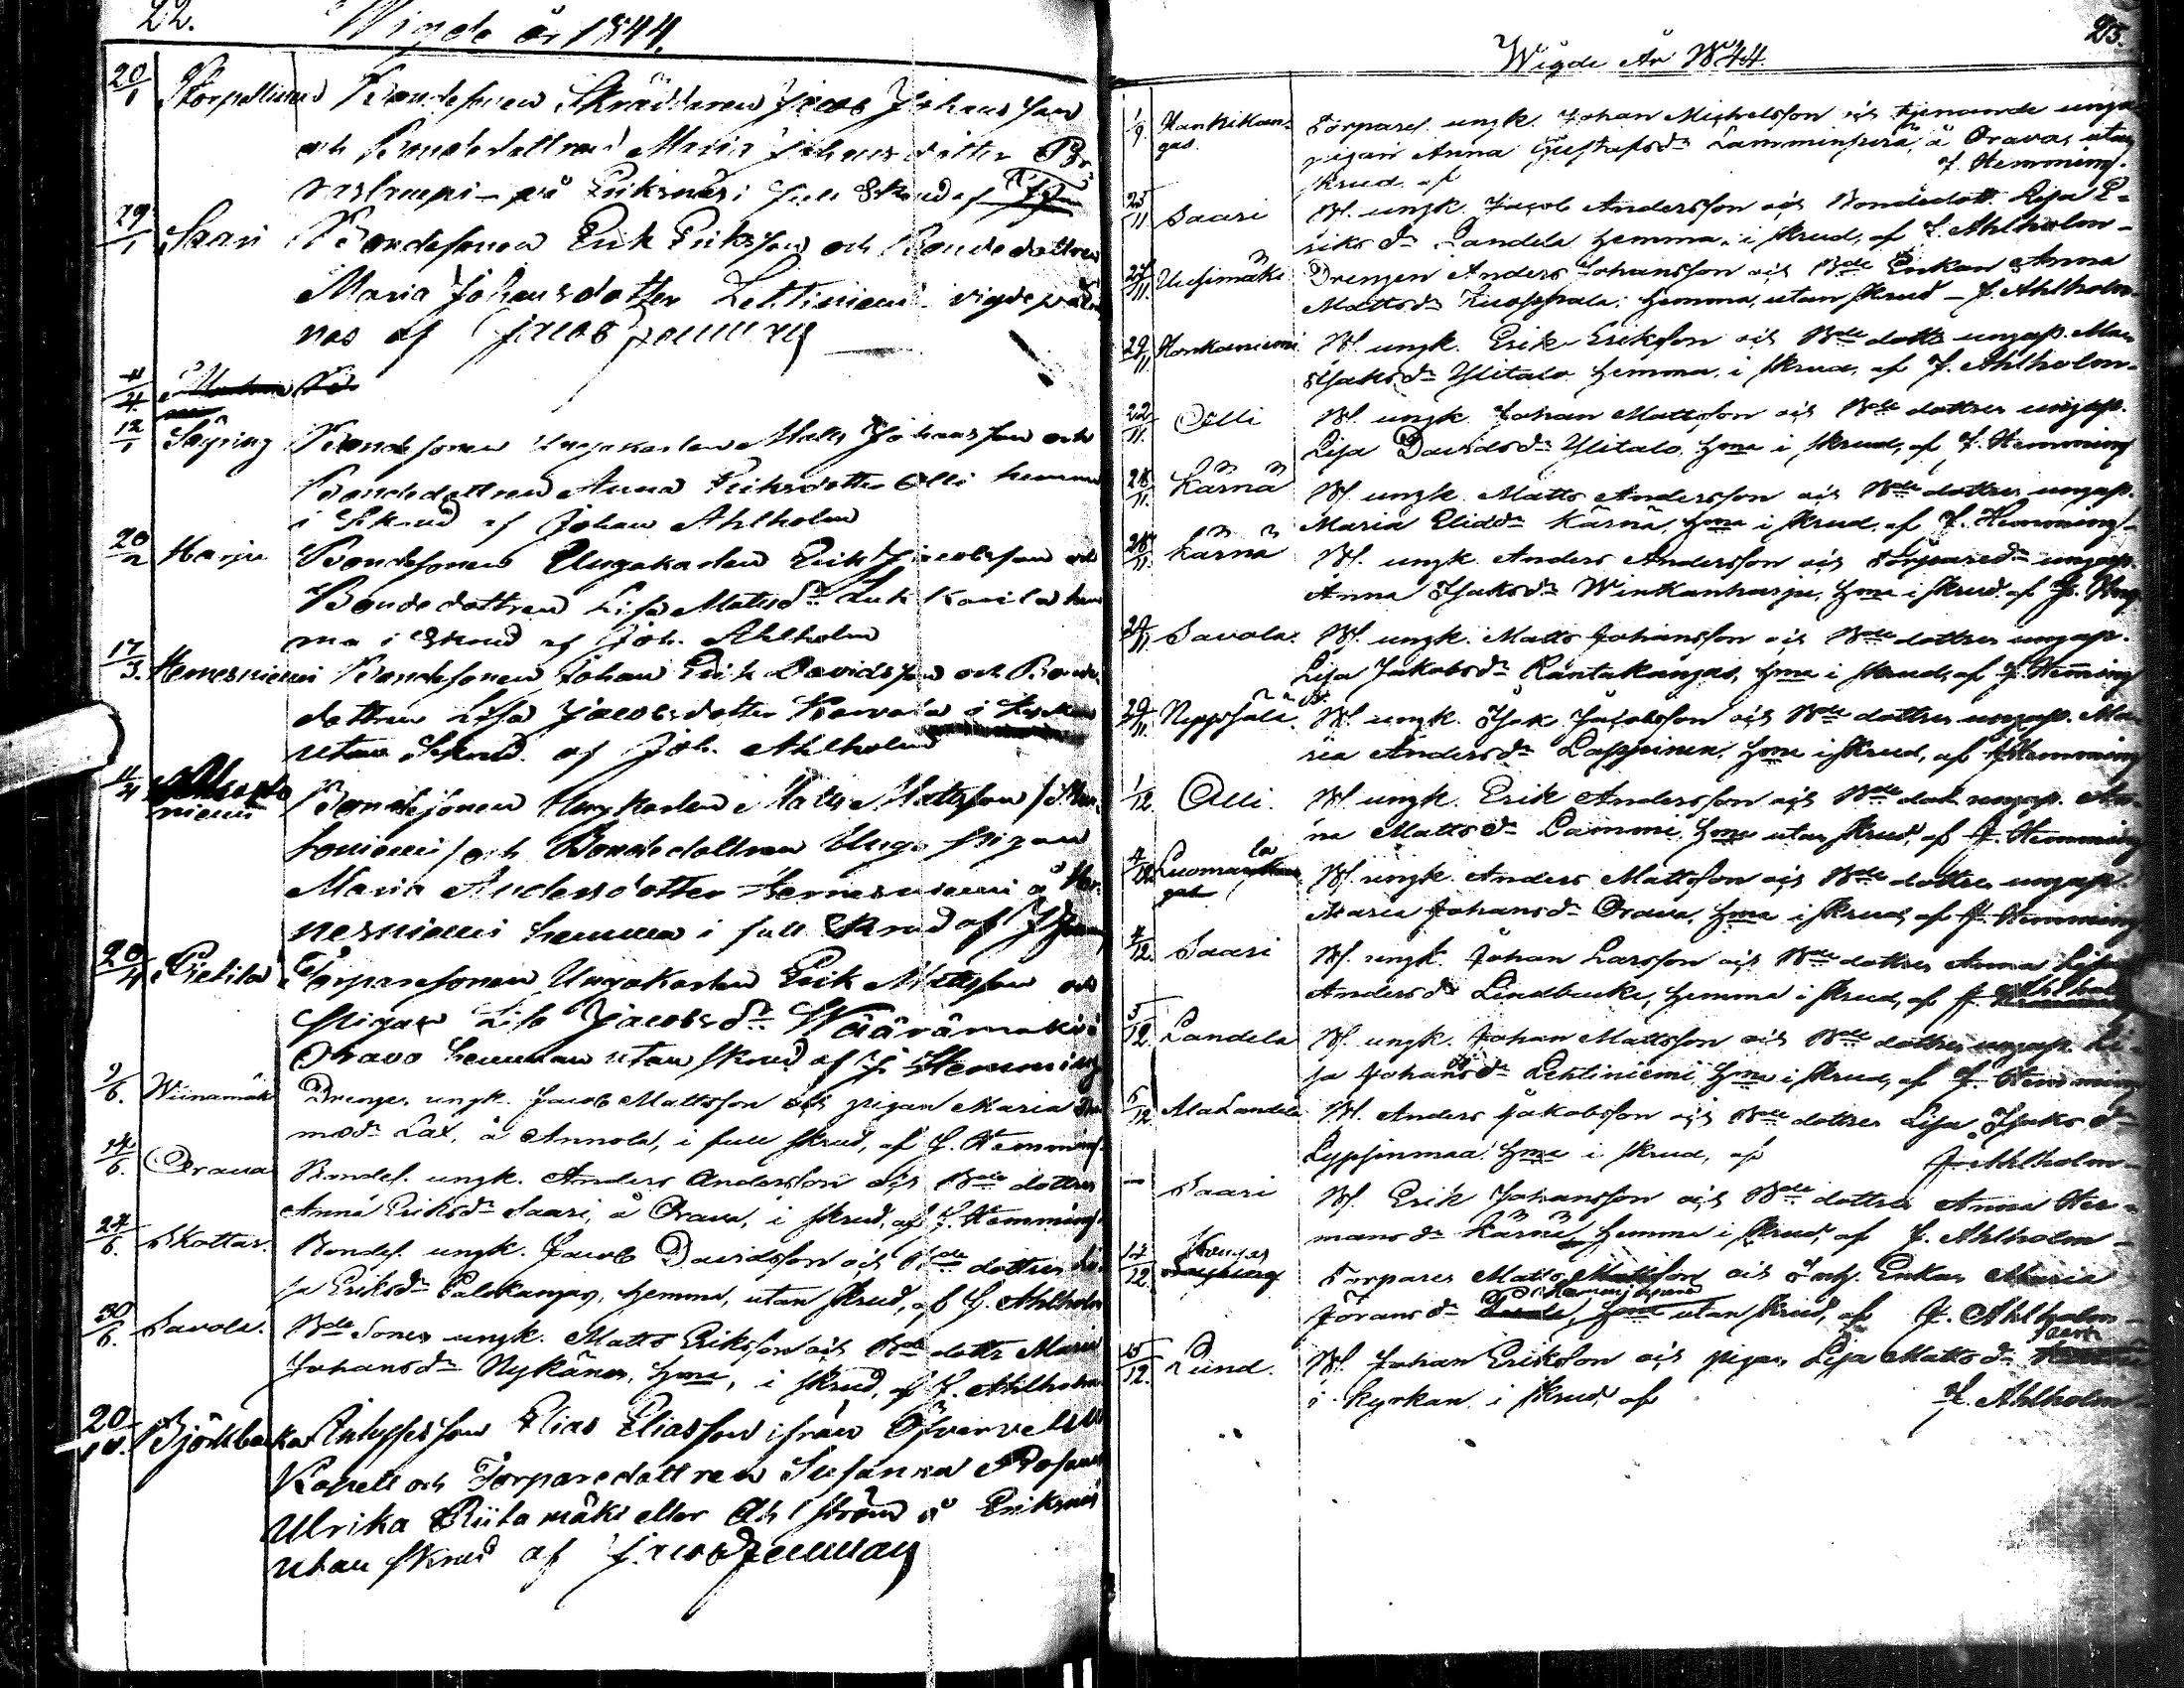 22.
Wigde år 1844.
20/1 Bondesonen Skräddaren Jacob Johansson
och Bondedottren Maria Johansdotter
på Eriksnäs i full Skrud af
29/1 Saari Bondesonen Erik Eriksson och Bondedottren
Maria Johansdotter Lehtiniemi vigde
af Jacob Hemming
12/1 Bondesonen Ungakarlen Matts Johansson och
Bondedottren Anna Eriksdotter Olli hemma
i Skrud af Johan Ahlholm
20/2 Harju Bondesonen Ungakarlen Erik Jacobsson och
Bondedottren Lisa Mattsdr Kavila hem
ma i Skrud af Joh. Ahlholm
17/3. Hernesniemi Bondesonen Johan Erik Davidsson och Bonde
dottren Lisa Jacobsdotter
utan Skrud af Joh. Ahlholm
11/4 niemi Bondesonen Ungkarlen Matts Mattsson
och Bondedottren Unga pigan
Maria Andersdotter Hernesniemi å Her
nesniemi hemma i full Skrud af J
20/4 Pietilä Torparesonen Ungakarlen Erik Mattsson och
Pigan Lisa Jacobsdr Wäärämäki i
Orava hemman utan skrud af J Hemming
9/6. Wiinamäki Drengen ungk. Jacob Mattsson och pigan Maria
Lax, å Annola, i full skrud, af J. Hemming
14/6. Orava Bondes. ungk. Anders Andersson och Bde dottren
Anna Eriksdr Saari, å Orava, i skrud, af J. Hemming
24/6. Skattar. Bondes. ungk. Jacob Davidsson och Bde dottren Li
sa Eriksdr Palokangas, hemma, utan skrud, af J. Ahlholm
30/6. Savola. Bde Sonen ungk. Matts Eriksson och Bde dottr Maria
Johansdr Nykänen, hme, i skrud, af J. Ahlholm
20/10. Björkbacka Inhysesson Elias Eliasson ifrån Öfvervetil
Kapell och Torparedottren Susanna
Ulrika Riitamäki eller Ahlström å Eriksnäs
utan skrud af Jacob Hemming
25.
Wigde År 1844.
1/9. Hankikan- Torpares. ungk. Johan Michelsson och tjenande unga
gas. pigan Anna Gustafsdr Lamminperä, å Orava, utan
skrud af J. Hemming.
25/11 Saari Bs. ungk. Jacob Andersson och Bondedott. Lisa E-
riksdr Sandela hemma, i skrud, af J. Ahlholm
27/11. Uusimäki Drengen Anders Johansson och Bde Enkan Anna
Mattsdr Kuoppala, hemma, utan skrud - J. Ahlholm
29/11. Honkaniemi Bs. ungk. Erik Eriksson och Bde dottr ungap. Ma
Isaksdr Ylitalo hemma, i skrud, af J. Ahlholm
22/11. Olli Bs. ungk. Johan Mattsson och Bde dottren ungap.
Lisa Davidsdr Ylitalo, hme i skrud, af J. Hemming
28/11. Kärnä Bs. ungk. Matts Andersson och Bde dottren ungap.
Maria Eliedr Kärnä, hme i skrud, af J. Hemming
28/11. Kärnä Bs. ungk. Anders Andersson och Torparedr ungap.
Anna Isaksdr Winkanharju, hme i skrud, af J. Hmg
24/11. Savola. Bs. ungk. Matts Johansson och Bde dottren ungap.
Lisa Jakobsdr Rantakangas, hme i skrud, af J. Hemming
29/11. Bs. ungk. Isak Jacobsson och Bde dottren ungap. Ma
ria Andersdr Lappinen, hme i skrud, af J Hemming
1/12. Olli. Bs. ungk. Erik Andersson och Bde dott. ungap. An
na Mattsdr Lammi, hme utan skrud, af J. Hemming
Luomala Bs. ungk. Anders Mattsson och Bde dottren ungap.
Maria Johansdr Orava, hme i skrud, af J. Hemming
4/12. Saari Bs. ungk. Johan Larsson och Bde dottren Anna Lisa
Andersdr Lindbacke, hemma i skrud, af J. Ahlholm
5/12. Sandela Bs. ungk. Johan Mattsson och Bde dottren ungap. Li-
sa Johansdr Lehtiniemi, hme i skrud, af J. Hemming
6/12. Ala Sandela Bs. Anders Jakobsson och Bde dottren Lisa Isaksdr
Lypsinmaa, hme i skrud, af J. Ahlholm
— Saari Bs. Erik Johansson och Bde dottren Anna Her-
mansdr Kärnä, hemma i skrud, af J. Ahlholm
12/12. Kangas Torparen Matts Mattsson och Enkan Maria
Göransdr utan skrud, af J. Ahlholm
15/12. Lund. Bs. Johan Eriksson och pigan Lisa Mattsdr Saari
i kyrkan i skrud, af J. Ahlholm